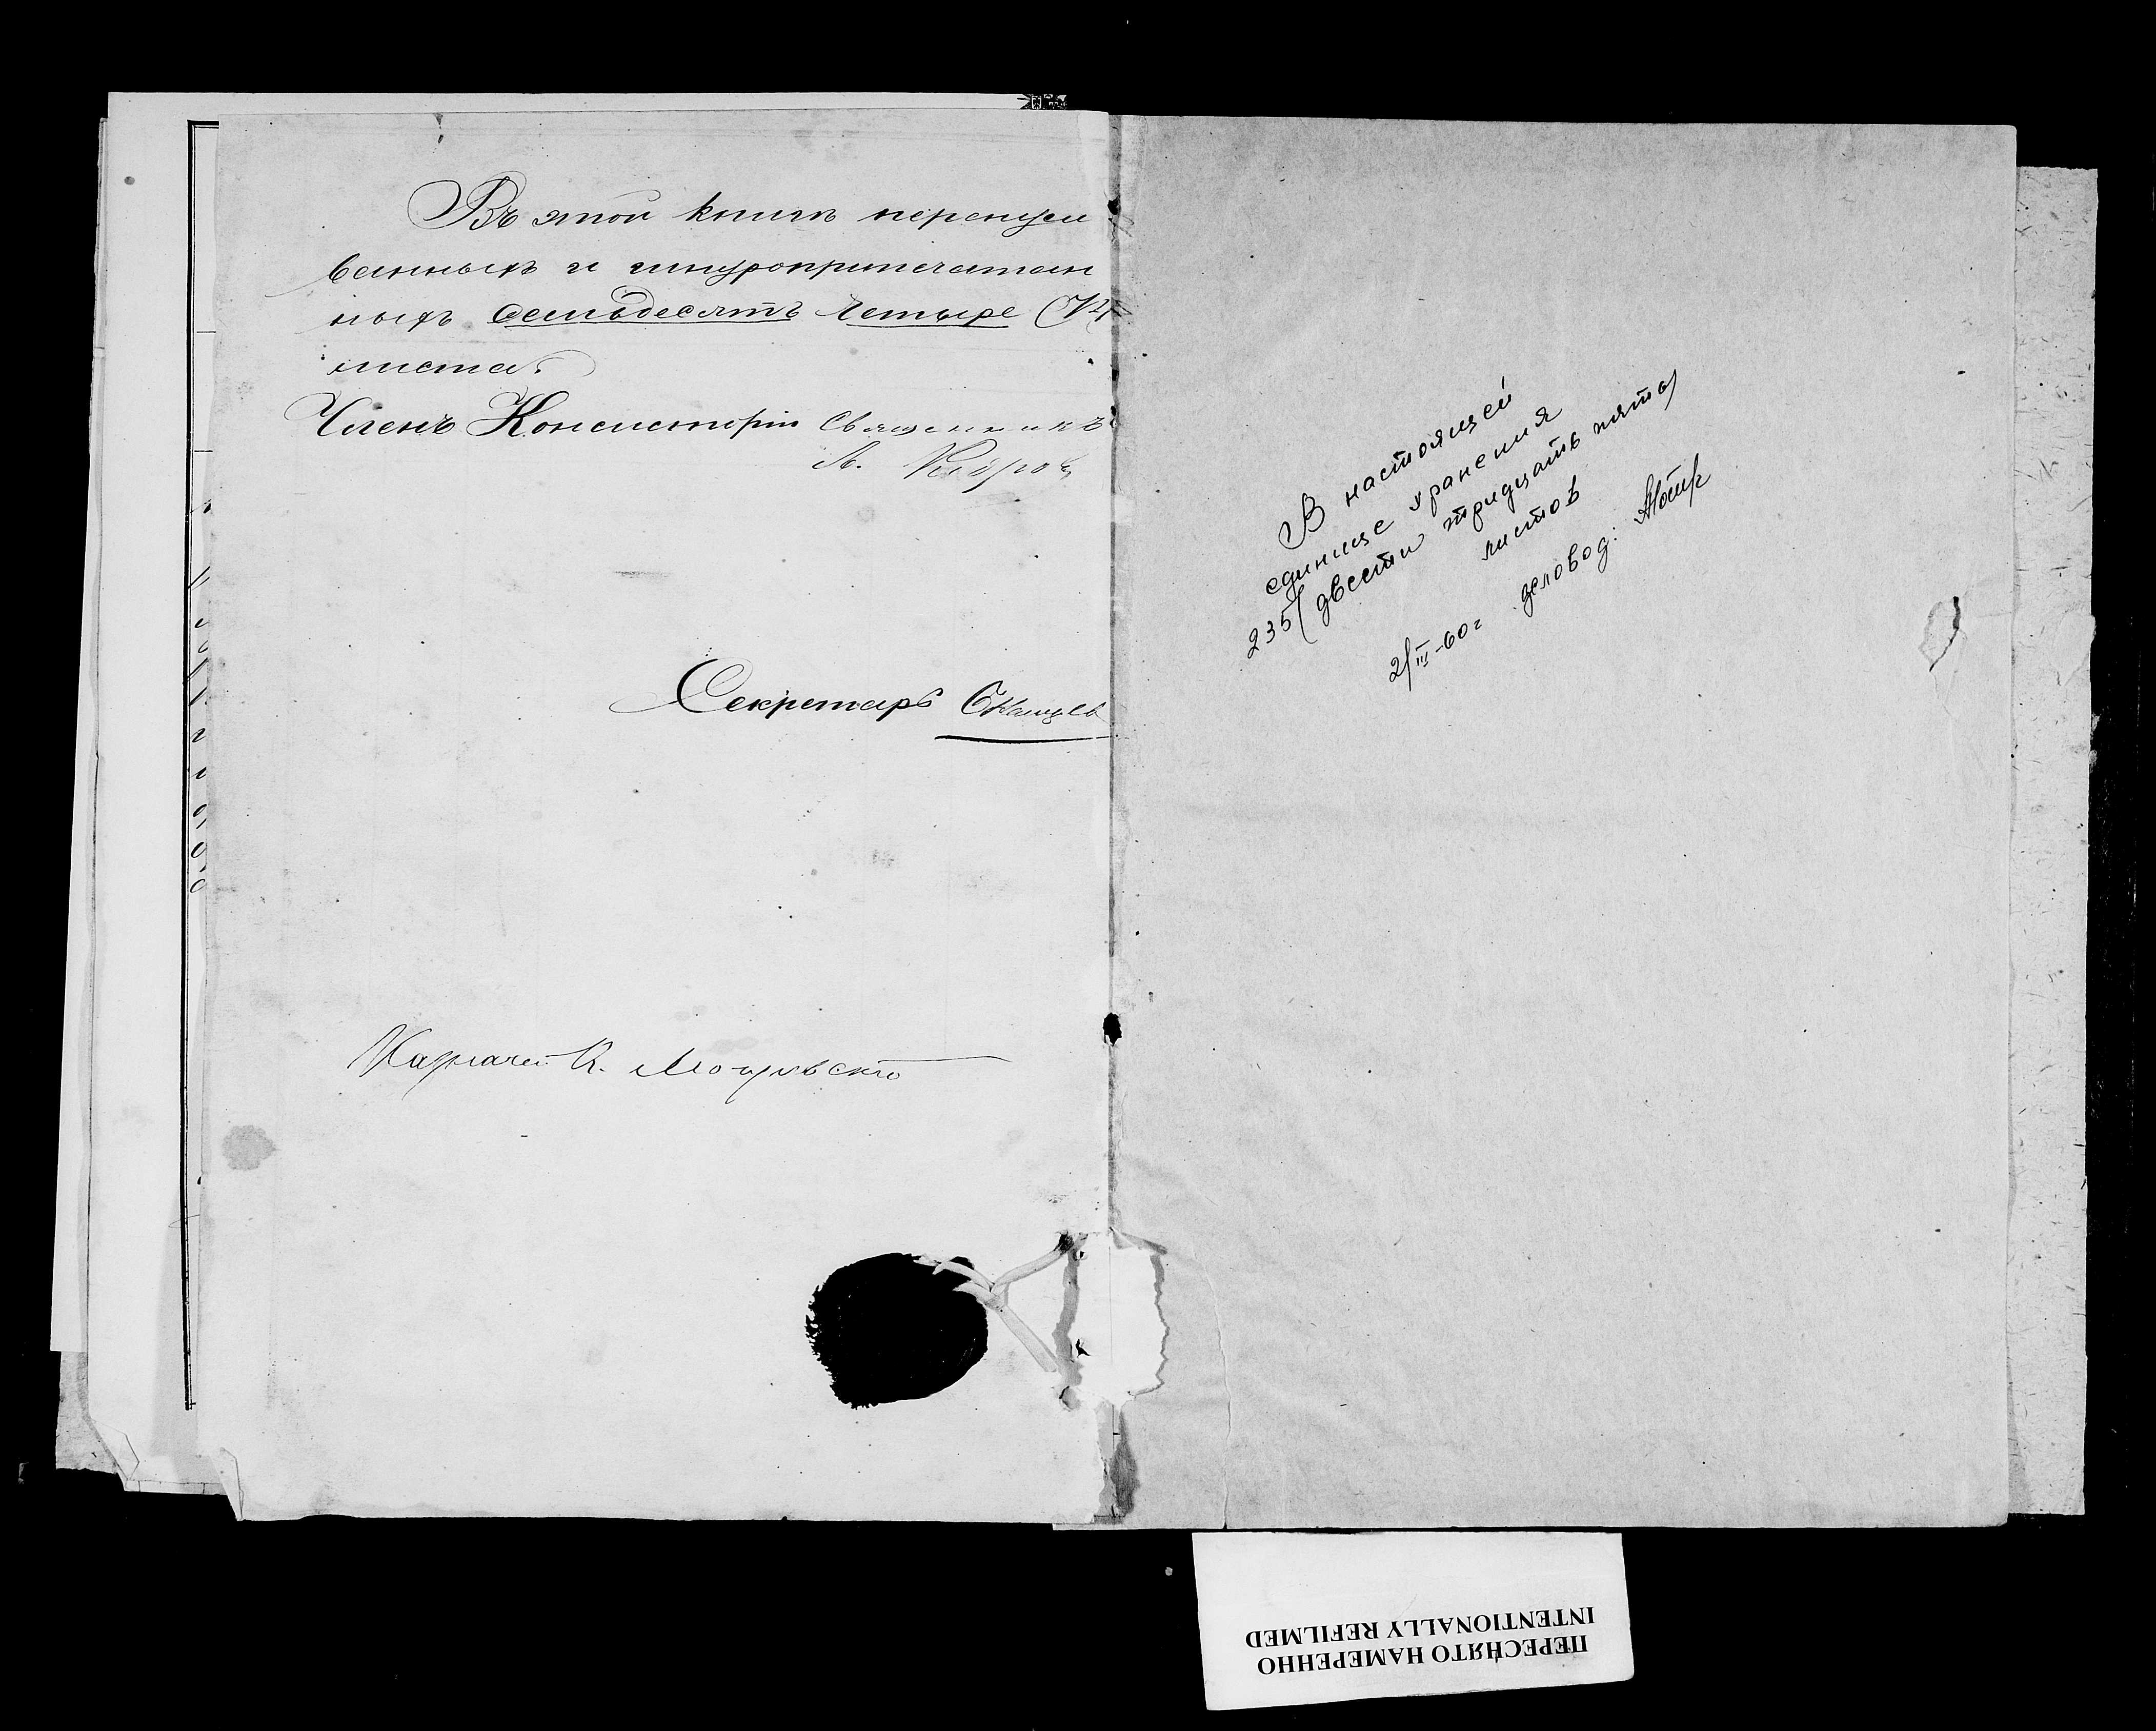 Въ этой книгѣ перенуме
ванныхъ и шнуроприпечатан
ныхъ семьдесятъ четыре (74
листа.
Членъ Консисторіи Священникъ
А.
Секретарь
Казначей К.
В настоящей
единице хранения
235 (двести тридцать пять)
листов
2/III-60г деловод:
ПЕРЕСНЯТО НАМЕРЕННО
INTENTIONALLY REFILMED